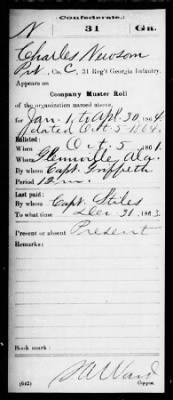 Confederate.
N 31 Ga.
Charles Newsom
Pvt, Co. C, 31 Reg't Georgia Infantry.
Appears on
Company Muster Roll
of the organization named above,
for Jan. 1, to Apl. 30, 1864.
dated Oct. 5 1864.
Enlisted:
When Oct. 5, 1861.
Where Glennville Ala.
By whom Capt. Griffeth
Period 12 m.
Last paid:
By whom Capt. Stiles
To what time Dec. 31, 1863.
Present or absent Present
Remarks:
Book mark:
(642) Copyist.